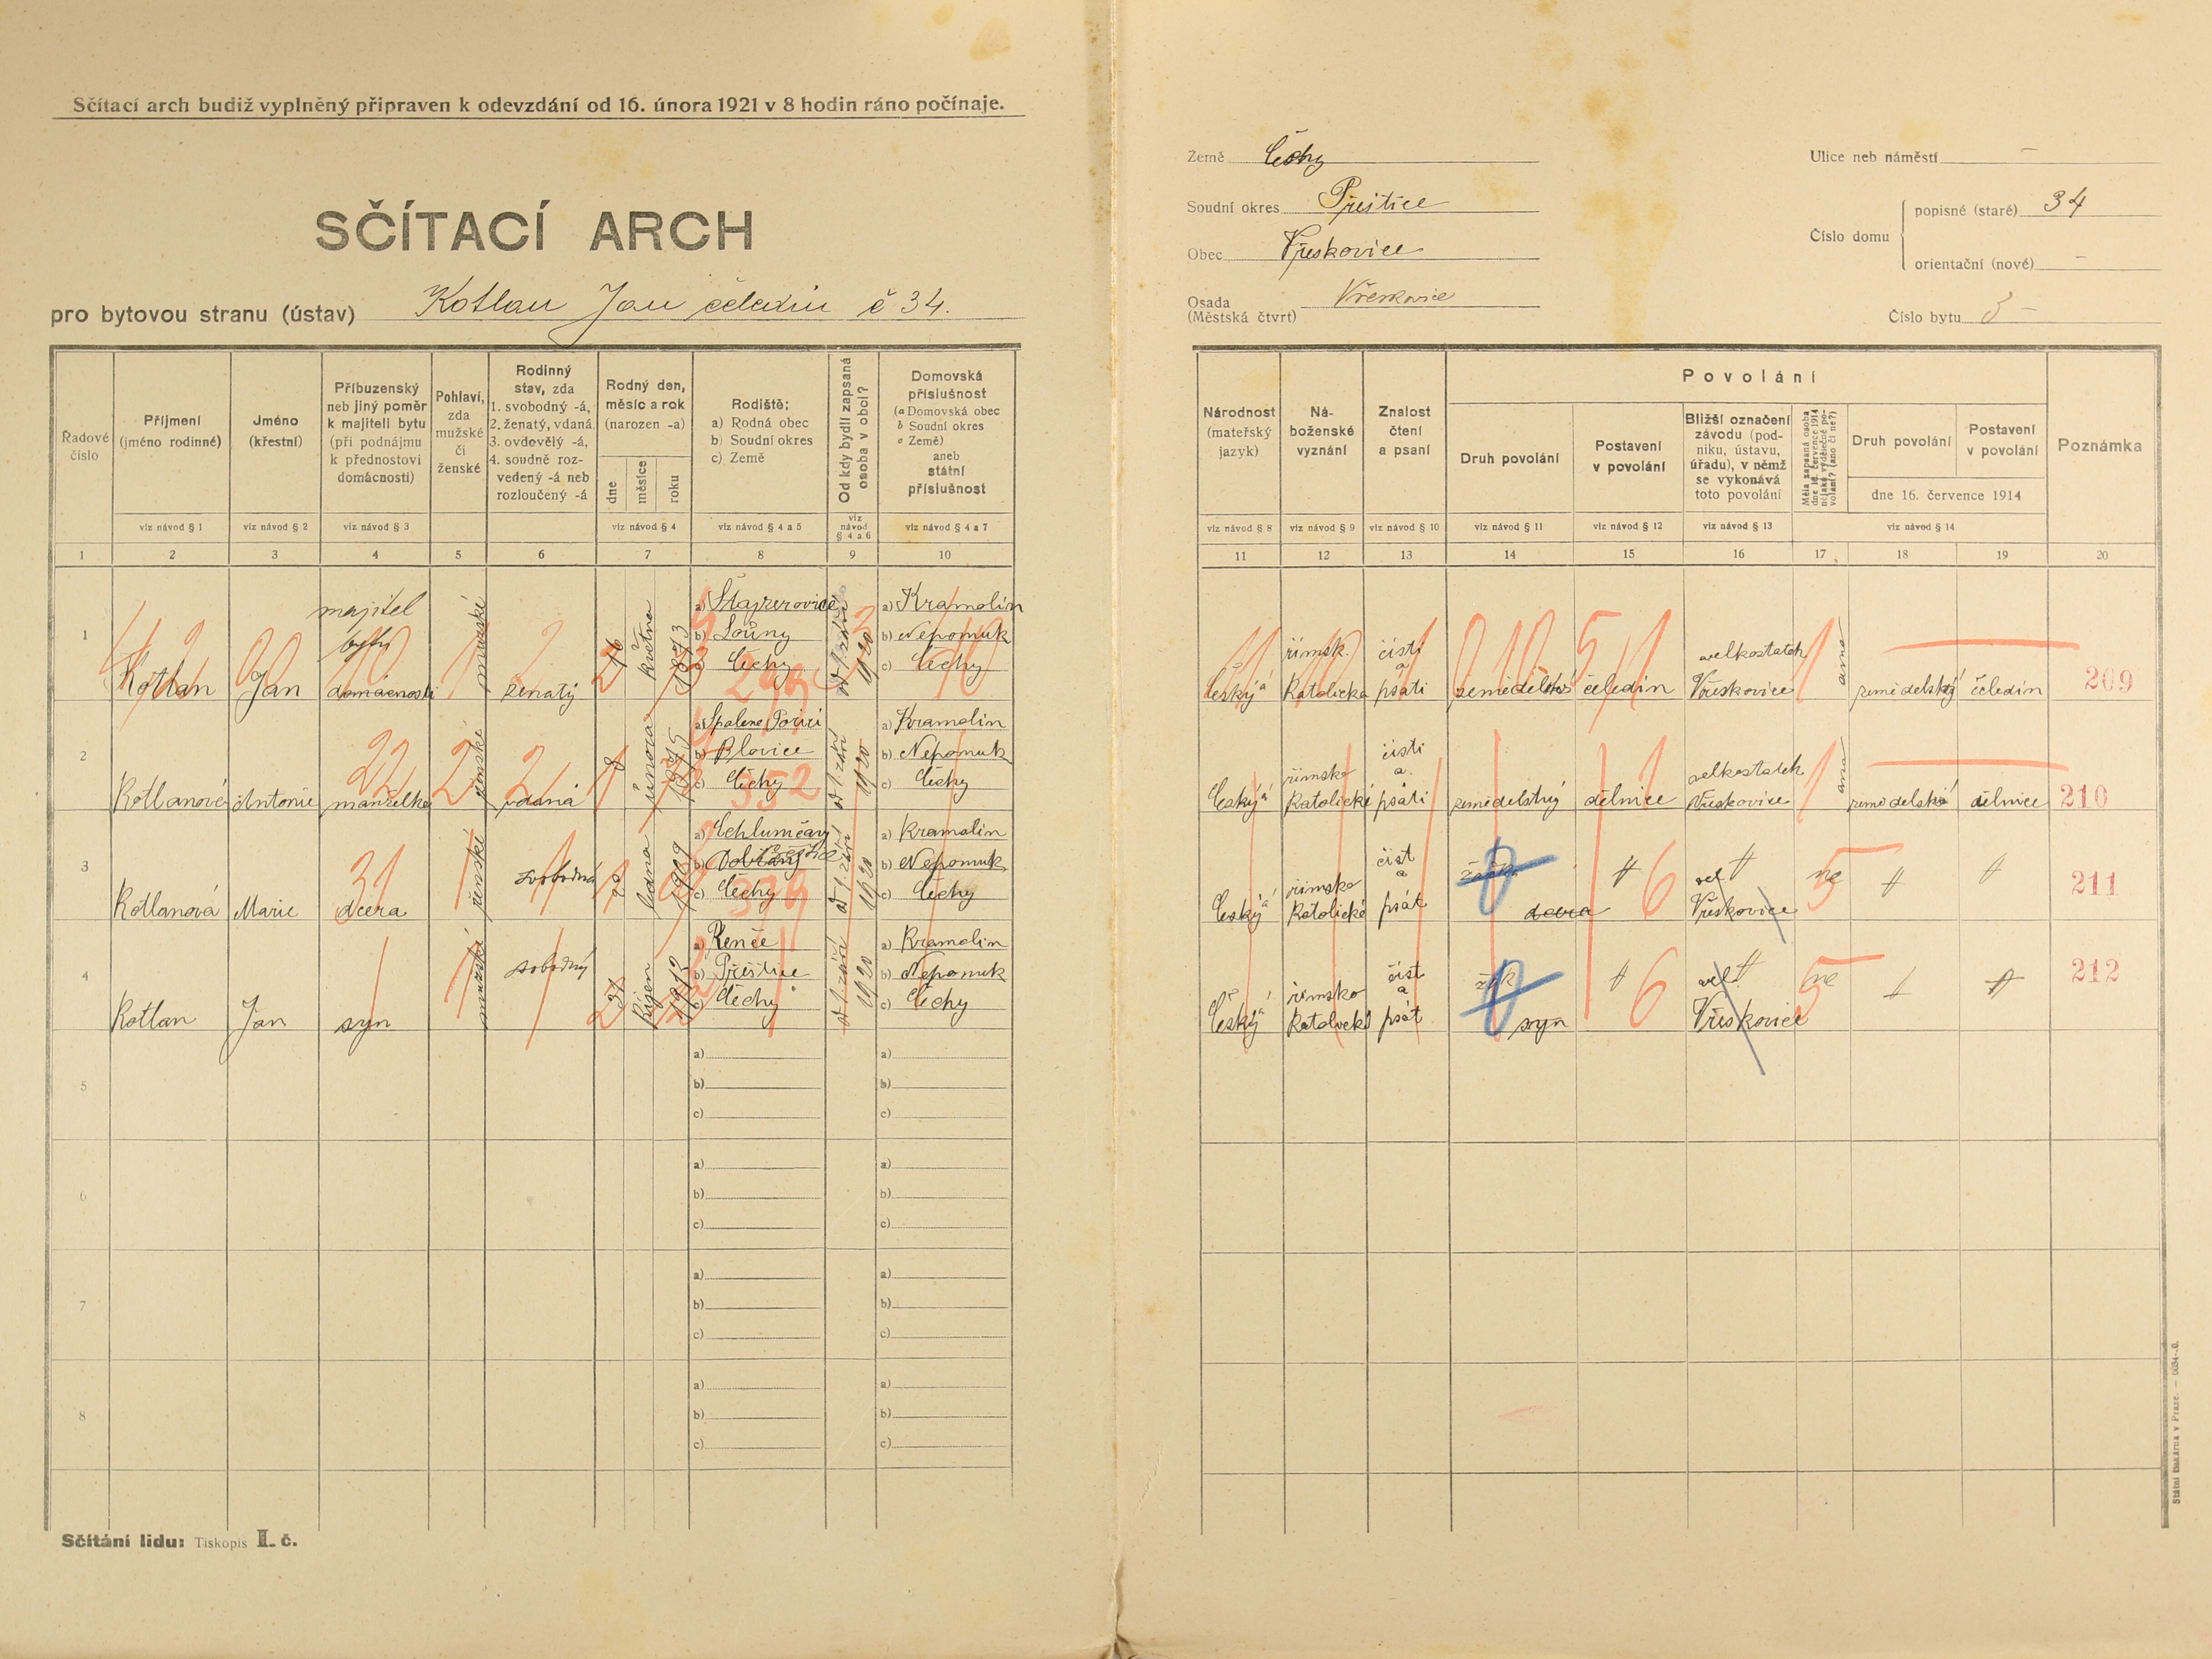 Sčítací arch budiž vyplněný připraven k odevzdání od 16. února 1921 v 8 hodin ráno počínaje.
SČÍTACÍ ARCH
pro bytovou stranu (ústav) Kotlan Jan čeledín č 34.
Země Čechy
Soudní okres Přeštice
Obec Vřeskovice
Osada Vřeskovice
(Městská čtvrt)
Ulice neb náměstí —
Číslo domu
popisné (staré) 34
orientační (nové) —
Číslo bytu
Řadové číslo
Příjmení (jméno rodinné)
Jméno (křestní)
Příbuzenský neb jiný poměr k majiteli bytu (při podnájmu k přednostovi domácnosti)
Pohlaví, zda mužské či ženské
Rodinný stav, zda 1. svobodný -á, 2. ženatý, vdaná, 3. ovdovělý -á, 4. soudně rozvedený -á neb rozloučený -á
Rodný den, měsíc a rok (narozen -a)
dne měsíce roku
Rodiště:
a) Rodná obec
b) Soudní okres
c) Země
Od kdy bydlí zapsaná osoba v obci?
Domovská příslušnost
(a Domovská obec
b Soudní okres
c Země)
aneb státní příslušnost
viz návod § 1 viz návod § 2 viz návod § 3 viz návod § 4 viz návod § 4 a 5 viz návod § 4 a 6 viz návod § 4 a 7
1 2 3 4 5 6 7 8 9 10
Národnost (mateřský jazyk)
Náboženské vyznání
Znalost čtení a psaní
Povolání
Druh povolání
Postavení v povolání
Bližší označení závodu (podniku, ústavu, úřadu), v němž se vykonává toto povolání
Měla zapsaná osoba dne 16. července 1914 nějaké výdělečné povolání? (ano či ne?)
Druh povolání
Postavení v povolání
dne 16. července 1914
Poznámka
viz návod § 8 viz návod § 9 viz návod § 10 viz návod § 11 viz návod § 12 viz návod § 13 viz návod § 14
11 12 13 14 15 16 17 18 19 20
1 Kotlan Jan majitel bytu domácnosti mužské ženatý 26 května 1873
b) Louny
c) Čechy
od 1. září 1920
a) Kramolín
b) Nepomuk
c) Čechy
Český á římsk. Katolická čísti a psáti čeledín velkostatek Vřeskovice ano zemědělský čeledín 209
2 Kotlanová Antonie manželka ženské vdaná 8 února 1875
a) Spalene Poříčí
b) Blovice
c) Čechy
od 1. září 1920
a) Kramolín
b) Nepomuk
c) Čechy
Český á římsko Katolické čísti a psáti zemědelský dělnice velkostatek Vřeskovice ano dělnice 210
3 Kotlanová Marie dcera ženské svobodná ledna 1909
a) Chlumčany
b) Dobřany
c) Čechy
od 1. září 1920
a) Kramolin
b) Nepomuk
c) Čechy
Český á římsko Katolické číst a psát dcera vel. Vřeskovice ne 211
4 Kotlan Jan syn mužské sobodný říjen 1912
a) Renče
b) Přeštice
c) Čechy
od 1. září 1920
a) Kramolin
b) Nepomuk
c) Čechy
Český á římsko Katolické číst a psát žák syn vel. Vřeskovice ne 212
5 a) a)
b) b)
c) c)
6 a) a)
b) b)
c) c)
7 a) a)
b) b)
c) c)
8 a) a)
b) b)
c) c)
Sčítání lidu: Tiskopis II. č.
Státní tiskárna v Praze.